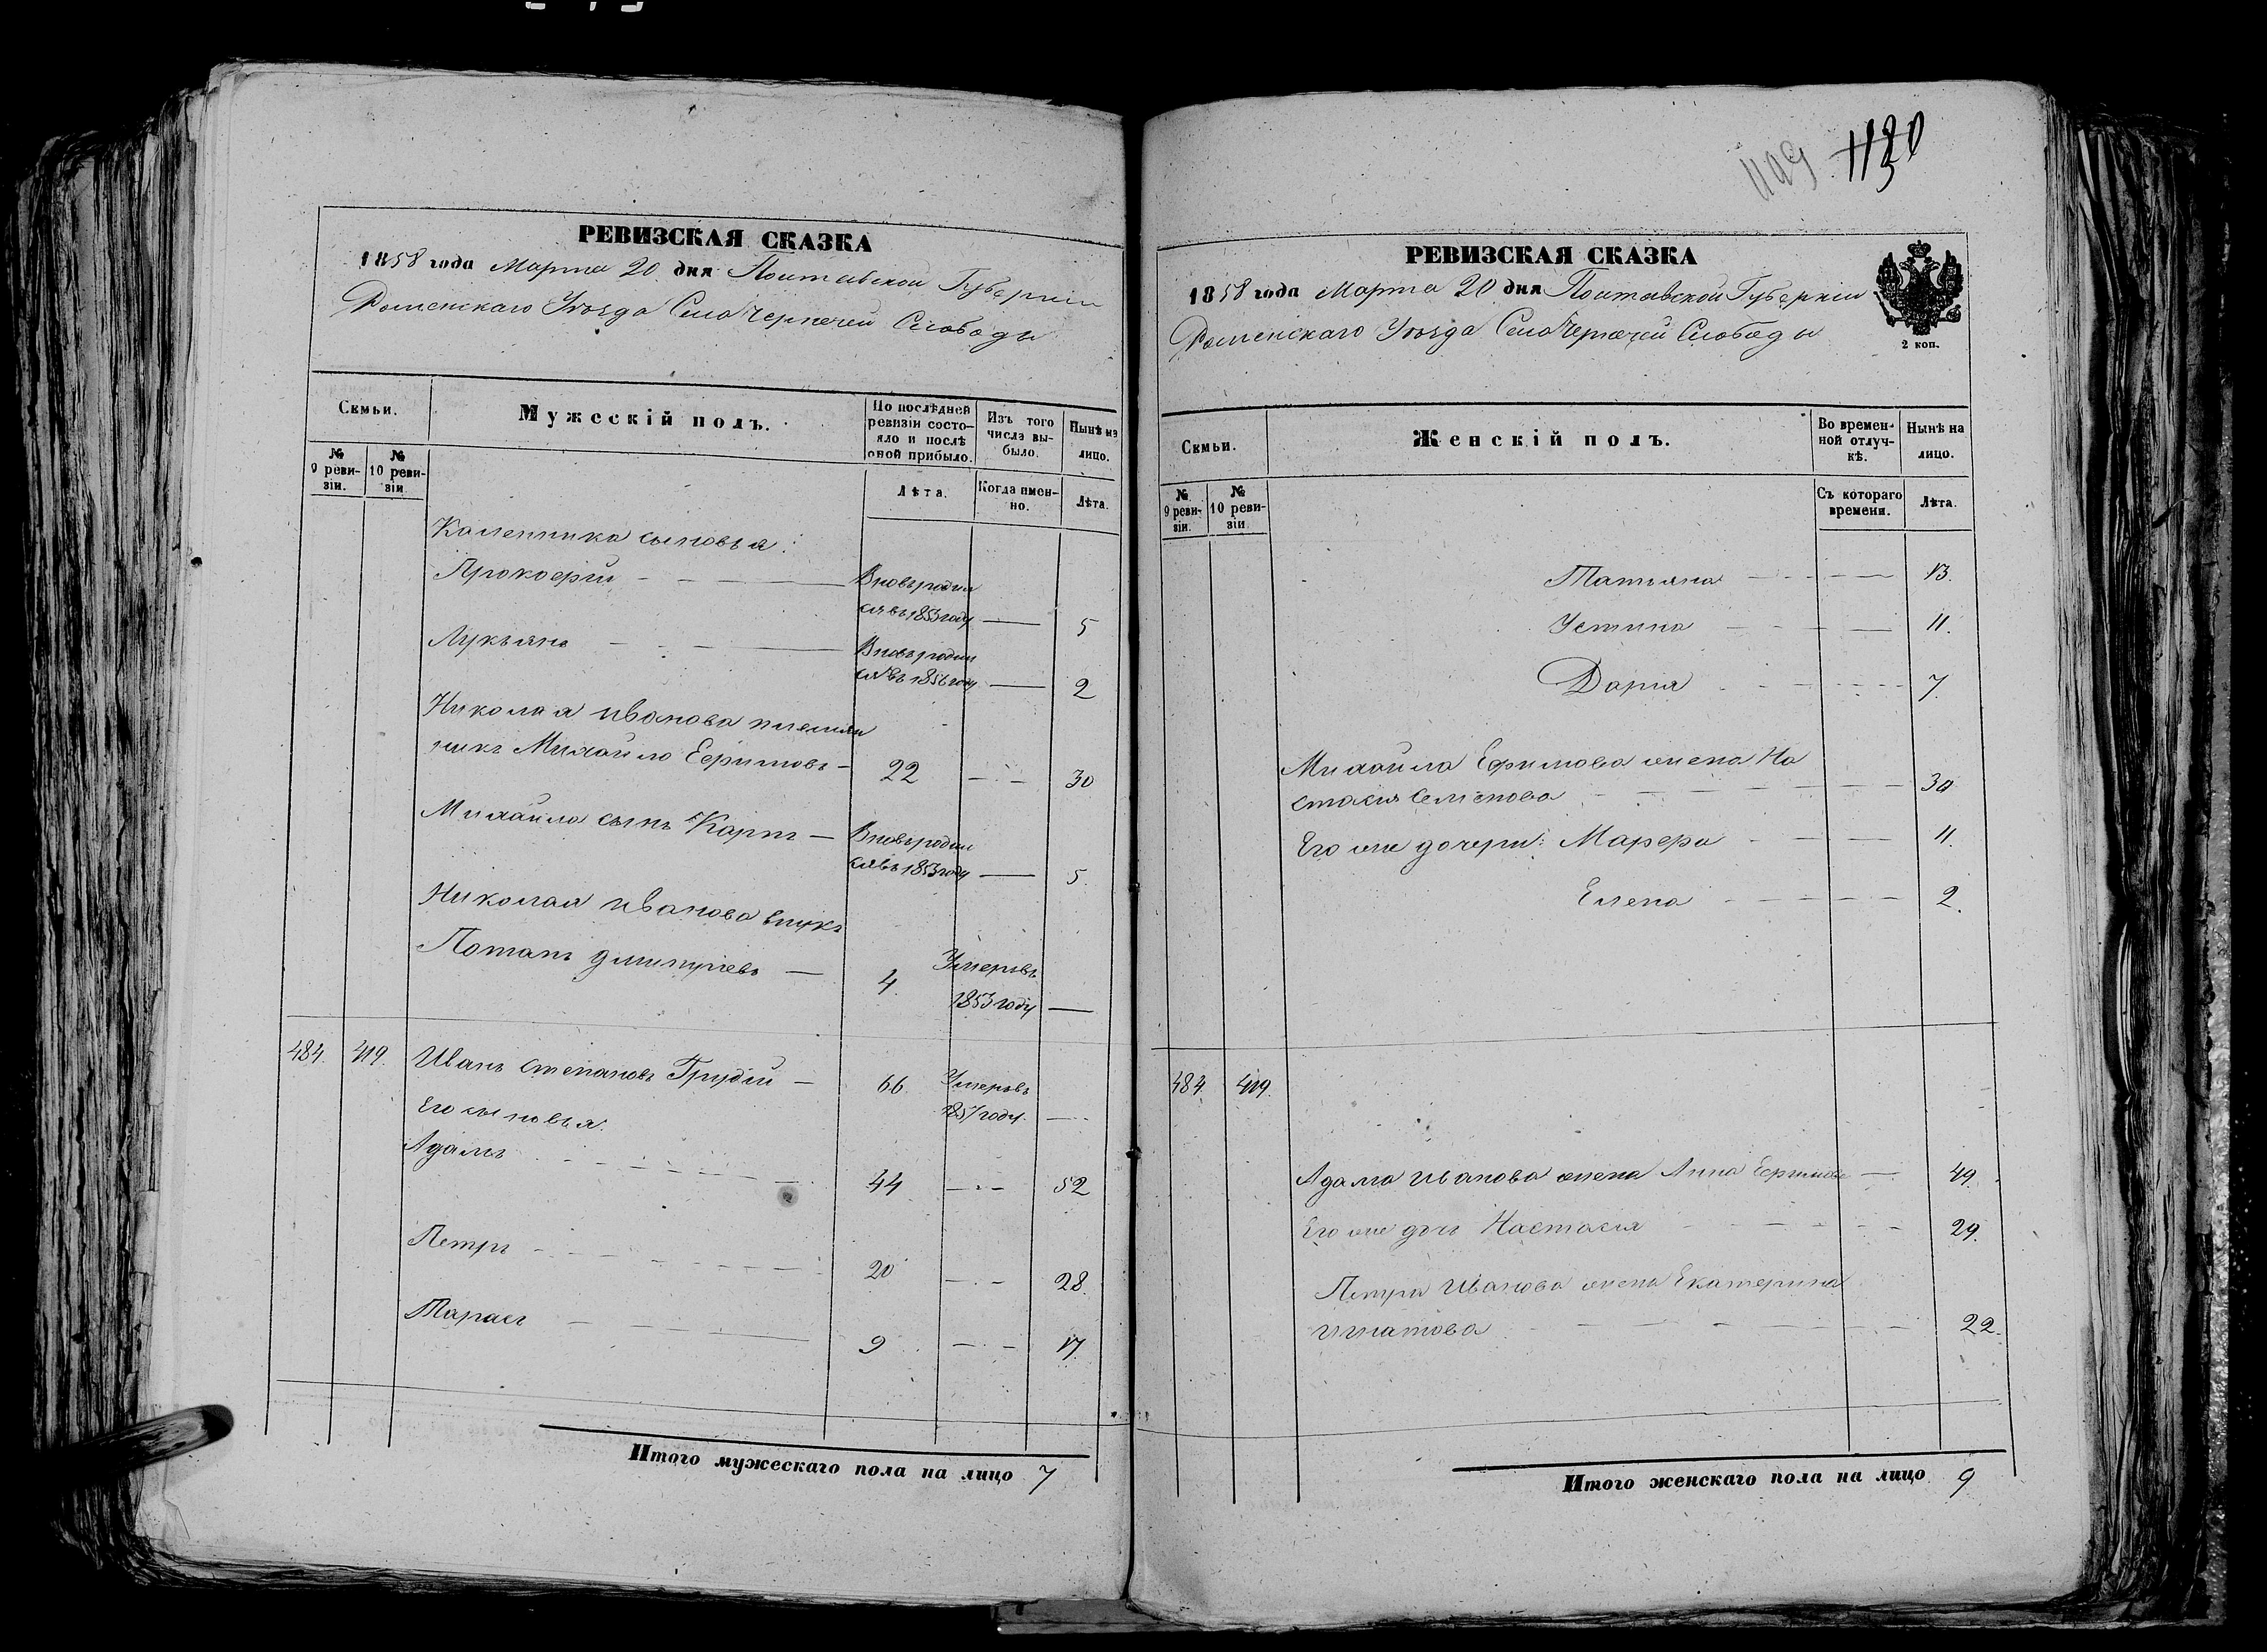 РЕВИЗСКАЯ СКАЗКА
1858 года Марта 20 дня Полтавской Губернiи
Роменскаго Уѣзда Села Чернечей Слободы
Семьи.
Мужескій полъ.
По послѣдней ревизіи состояло и послѣ оной прибыло.
Изъ того числа выбыло.
Нынѣ на лицо.
№ 9 ревизіи.
№ 10 ревизіи
Лѣта.
Когда именно.
Лѣта.
Каленника сыновья:
Прокофій - - - Вновь родил
ся въ 1853 году — 5
Лукьянъ - - - Вновь родил
ся въ 1856 году — 2
Николая Иванова племян
никъ Михайло Ефимовъ — 22 - - 30
Михайла сынъ Карпъ — Вновь родил
ся въ 1853 году — 5.
Николая Иванова внукъ
Потапъ Дмитріевъ — 4. Умеръ въ
1853 году —
484. 419. Иванъ Степановъ — 66. Умеръ въ
1857 году. —
Его сыновья:
Адамъ - - - 44 - - 52
Петръ - - - 20 - - 28.
Тарасъ - - - 9 - - 17.
Итого мужескаго пола на лицо 7
1130
РЕВИЗСКАЯ СКАЗКА
1858 года Марта 20 дня Полтавской Губернiи
Роменскаго Уѣзда Села Чернечей Слободы
2 коп.
Семьи.
Женскій полъ.
Во временной отлучкѣ.
Нынѣ на лицо.
№ 9 ревизіи.
№ 10 ревизіи
Съ котораго времени.
Лѣта.
Татьяна - - - 13.
Устина - - - 11.
Дарья - - - 7.
Михайла Ефимова жена На
стасья Семенова - - - 30
Его же дочери: Марфа - - - 11.
Елена - - - 2.
484. 419.
Адама Иванова жена Анна Ефимова — 49.
Его же дочь Настасья - - - 29.
Петра Иванова жена Екатерина
Игнатова - - - 22.
Итого женскаго пола на лицо 9